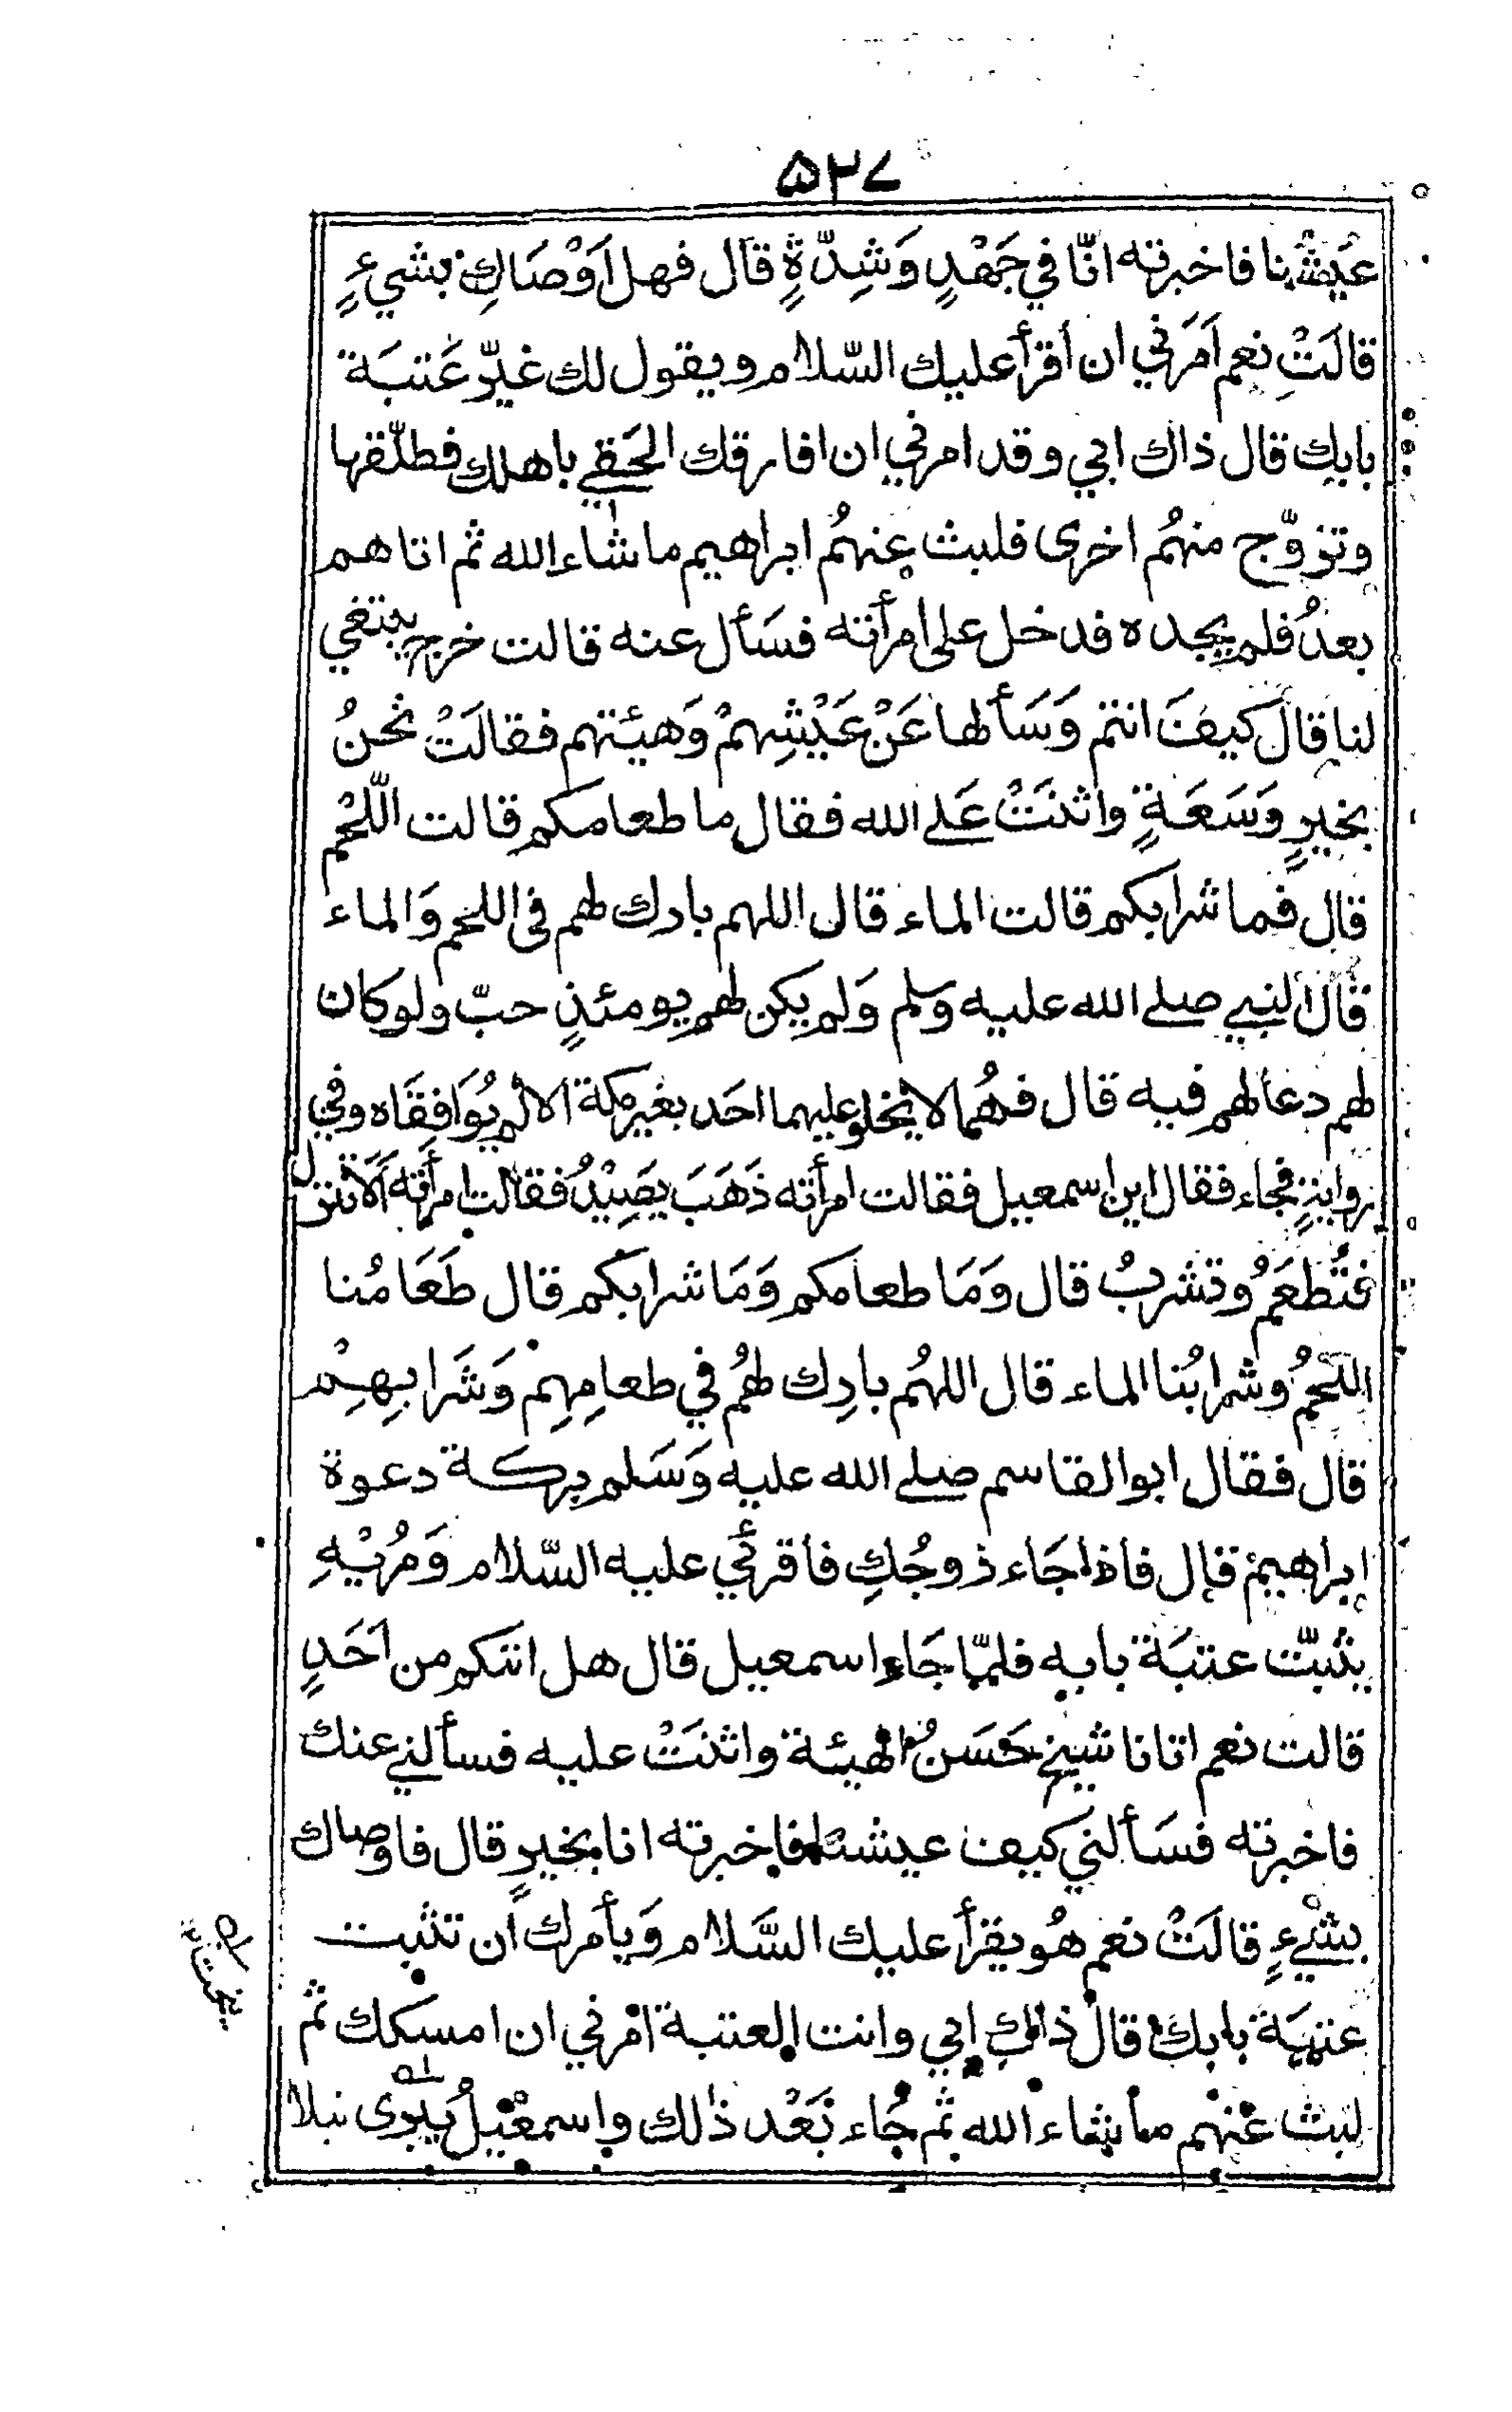 ۵۲۷
عَيْشُنا فاخبرته انّا في جَهْدٍ وَشِدّةٍ قال فهل اَوْصَاكِ بشيءٍ
قالَتْ نعم اَمَرَني ان أقرأ عليك السّلام ويقول لك غيّر عَتَبَة
بابك قال ذاك ابي وقد امرني ان افارقك الحَقي باهلك فطلّقها
وتزوّج منهُم اخرى فلبث عنهُم ابراهيم ما شاء الله ثم اتاهم
بعدُ فلم يجده فدخل على امرأته فسَأل عنه قالت خرج يبتغي
لنا قال كيفَ انتم وَسَألها عَنْ عَيْشِهِمْ وَهيئتهم فقالَتْ نحنُ
بخيرٍ وَسَعَةٍ واثنَتْ عَلى الله فقال ما طعامكم قالت اللّحْم
قال فما شرابكم قالت الماء قال اللهم بارك لهم في اللحم وَالماء
قال النبي صلى الله عليه وسلم وَلم يكن لهم يومئذٍ حبّ ولو كان
لهم دعا لهم فيه قال فهُما لا يخلو عليهما احَد بغير مكة الا لم يُوَافِقَاه وفي
روايةٍ فجاء فقال اين اسمعيل فقالت امرأته ذَهَبَ يَصِيْدُ فقالت امرأته اَلَا تنزل
فتَطعَمُ وتشربُ قال وَمَا طعامكم وَمَا شرابكم قال طَعَامُنا
اللحمُ وشرابُنا الماء قال اللهُم بارِك لهُم في طعامِهِم وَشَرابِهِمْ
قال فقال ابو القاسم صلى الله عليه وَسَلم بركة دعوة
ابراهيمْ قال فاذا جَاء زوجُكِ فاقرئي عليه السّلام وَمُرِيْهِ
يثبّت عتبَة بابه فلمّا جَاء اسمعيل قال هل اتتكم من اَحَدٍ
قالت نعم اتانا شيخ حَسَنُ الهيئة واثنَتْ عليه فسألني عنك
فاخبرته فسَألني كيف عيشنا فاخبرته انا بخيرٍ قال فاوصاك
بشْيءٍ قالَتْ نعم هُو يقرأ عليك السَّلام وَيأمرك ان تثبت
عتبَة بابك قال ذاك ابي وانت العتبة امرني ان امسكك ثم
لبث عنهم ما شاء الله ثم جَاء بَعْد ذلك واسمعيلُ يبرى نبلا